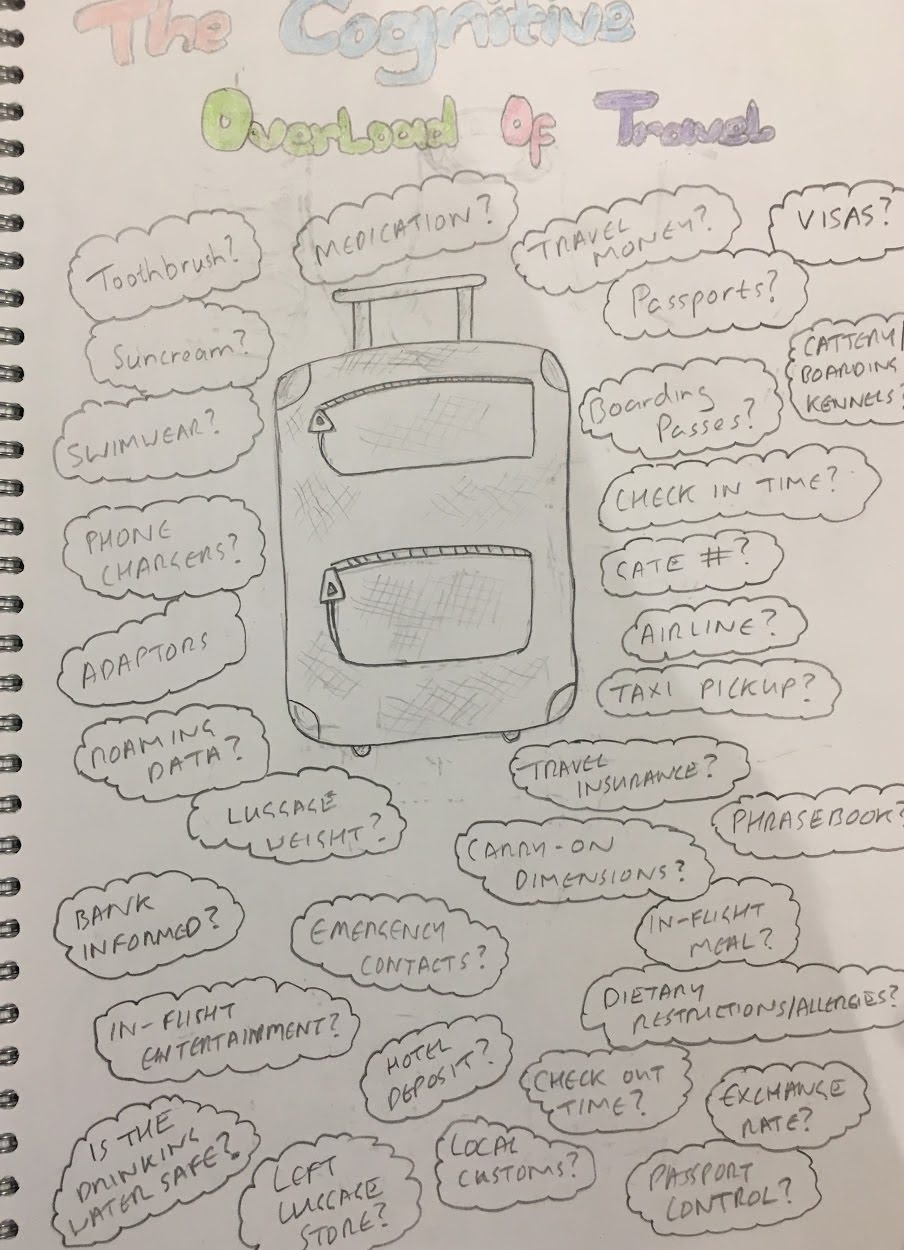 The Cognitive
Overload Of Travel
Toothbrush?
MEDICATION?
TRAVEL
MONEY?
VISAS?
Passports?
Suncream?
CATTERY/
BOARDING
KENNELS?
Boarding
Passes?
SWIMWEAR?
CHECK IN TIME?
PHONE
CHARGERS?
GATE #?
AIRLINE?
ADAPTORS
TAXI PICKUP?
ROAMING
DATA?
TRAVEL
INSURANCE?
LUGGAGE
WEIGHT?
PHRASEBOOK?
CARRY-ON
DIMENSIONS?
BANK
INFORMED?
EMERGENCY
CONTACTS?
IN-FLIGHT
MEAL?
DIETARY
RESTRICTIONS/ALLERGIES?
IN-FLIGHT
ENTERTAINMENT?
HOTEL
DEPOSIT?
CHECK OUT
TIME?
EXCHANGE
RATE?
IS THE
DRINKING
WATER SAFE?
LEFT
LUGGAGE
STORE?
LOCAL
CUSTOMS?
PASSPORT
CONTROL?